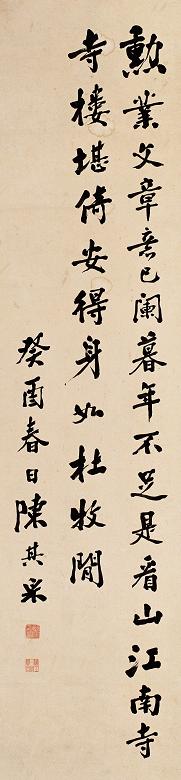 勲業文章意已闌暮年不足是看山江南寺
寺楼堪倚安得身如杜牧閒
癸酉春日陳其采